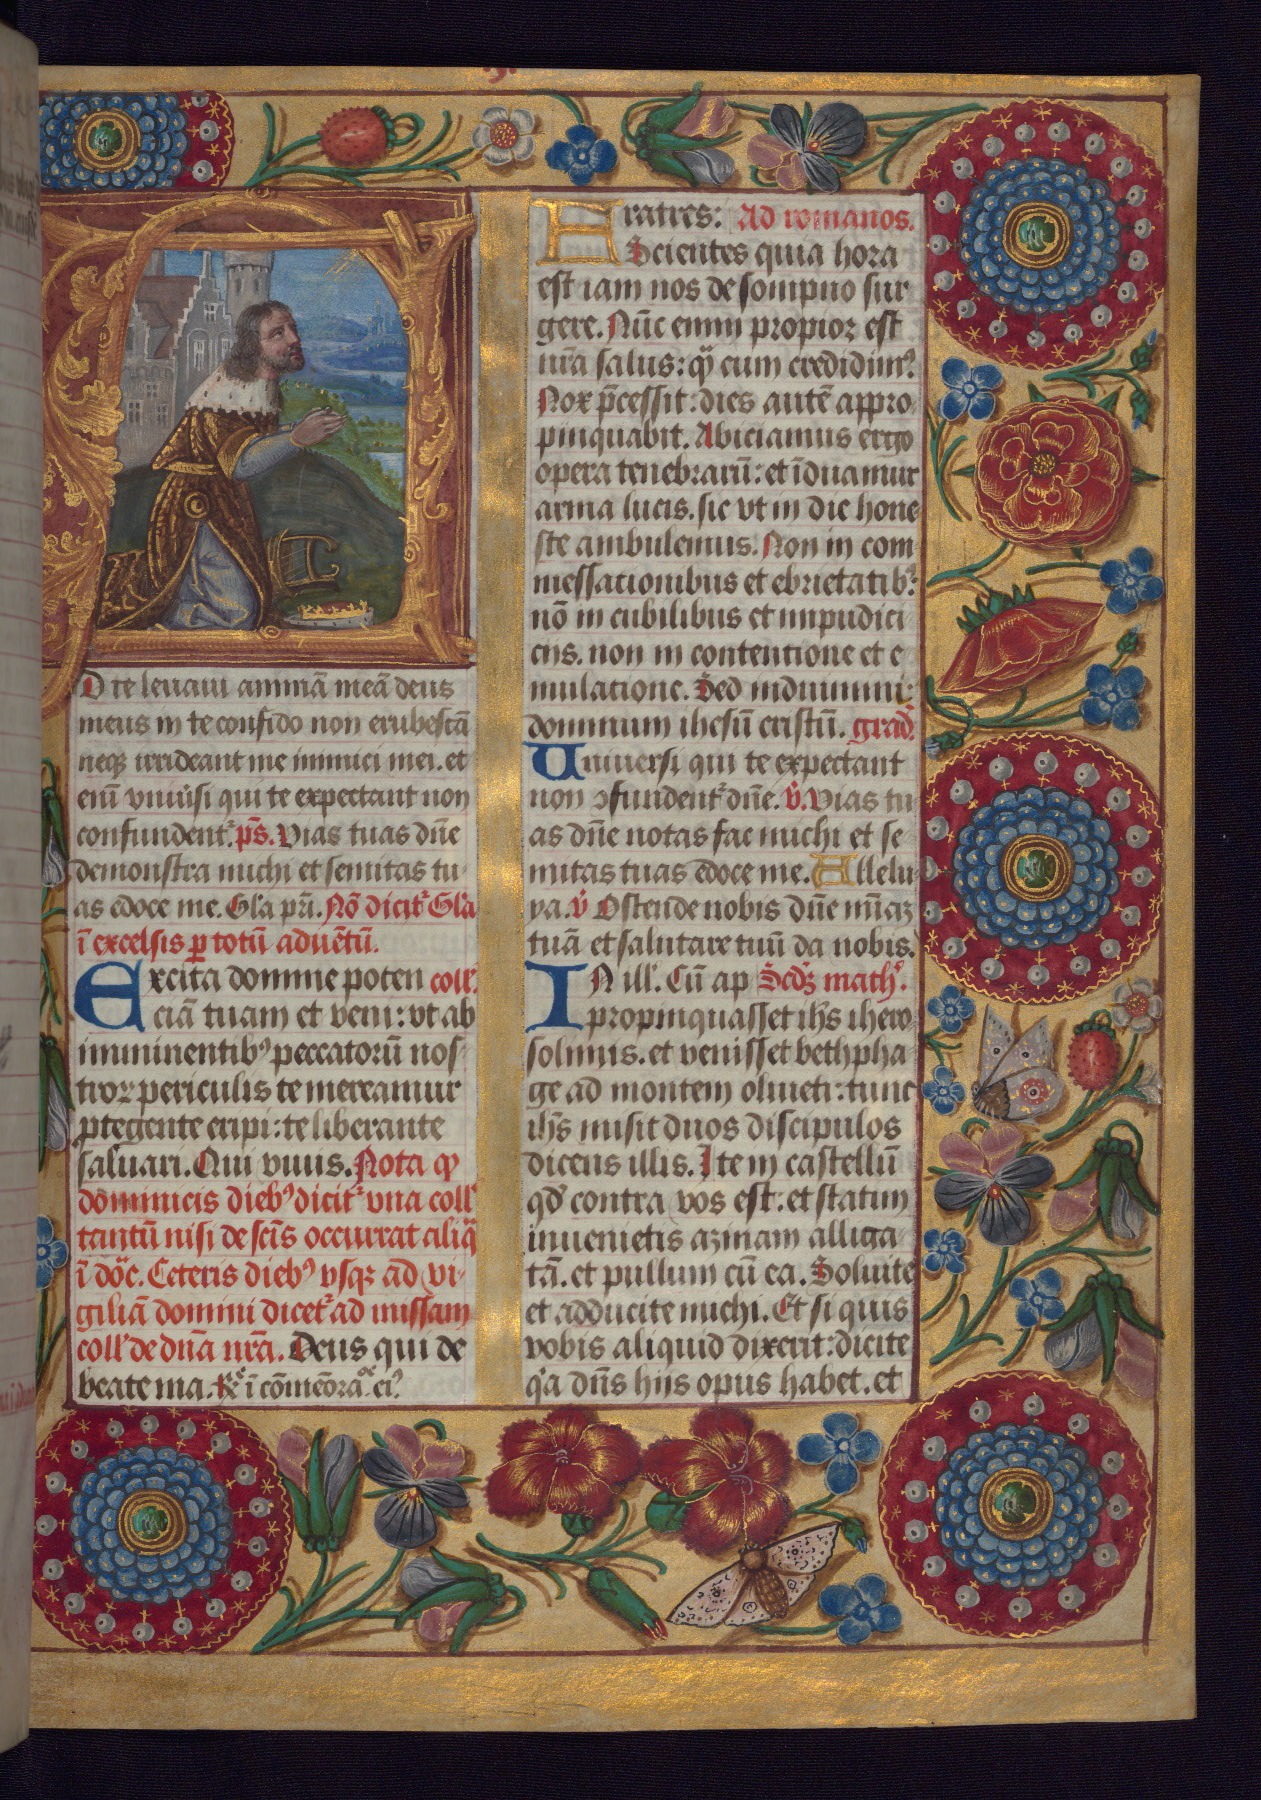 D te leuaui animā meā deus
meus in te confido non erubescā
neqȝ irrideant me inimici mei. et
enī vniūsi qui te expectant non
confundent᷑. ps̄. Vias tuas dn̄e
demonstra michi et semitas tu-
as edoce me. Gl̄a pr̄i. Nō dicit᷑ Gl̄a
ī excelsis ꝑ totū aduētū.
Excita domine poten coll'.
ciā tuam et veni: vt ab
imminentibꝰ peccatorū nos-
troꝝ periculis te mereamur
ꝓtegente eripi: te liberante
saluari. Qui viuis. Nota ꝙ
dominicis diebꝰ dicit᷑ vna coll'
tantū nisi de scīs occurrat aliq̄
ī do̅c. Ceteris diebꝰ vsqȝ ad vi-
giliā domini dicet᷑ ad missam
coll' de dn̄a nr̄a. Deus qui de
beate ma. ī cōmēora. ei᷑.
Fratres: Ad romanos.
Scientes quia hora
est iam nos de sompno sur
gere. Nūc enim propior est
nr̄a salus: qͣ̄ cum credidimꝰ
Nox p̄cessit: dies autē appro-
pinquabit. Abiciamus ergo
opera tenebrarū: et īduamur
arma lucis. sic vt in die hone
ste ambulemus. Non in com
messationibus et ebrietatibꝰ
nō in cubilibus et impudici
ciis. non in contentione et e
mulatione. Sed induimini:
dominum ihesū cristū. grad'.
Uniuersi qui te expectant
non ꝯfundent᷑ dn̄e. v̄. Vias tu-
as dn̄e notas fac michi et se-
mitas tuas edoce me. Allelu-
ya. v̄ Ostende nobis dn̄e mīaȝ
tuā et salutare tuū da nobis.
IN ill'. Cū ap Scd̄ȝ math'.
propinquasset ihs̄ ihero-
solimis. et venisset bethpha
ge ad montem oliueti: tunc
ihs̄ misit duos discipulos
dicens illis. Ite in castellū
qd̄ contra vos est: et statim
inuenietis azinam alliga
tā. et pullum cū ea. Soluite
et adducite michi. Et si quis
vobis aliquid dixerit: dicite
qͣa dn̄s hijs opus habet. et